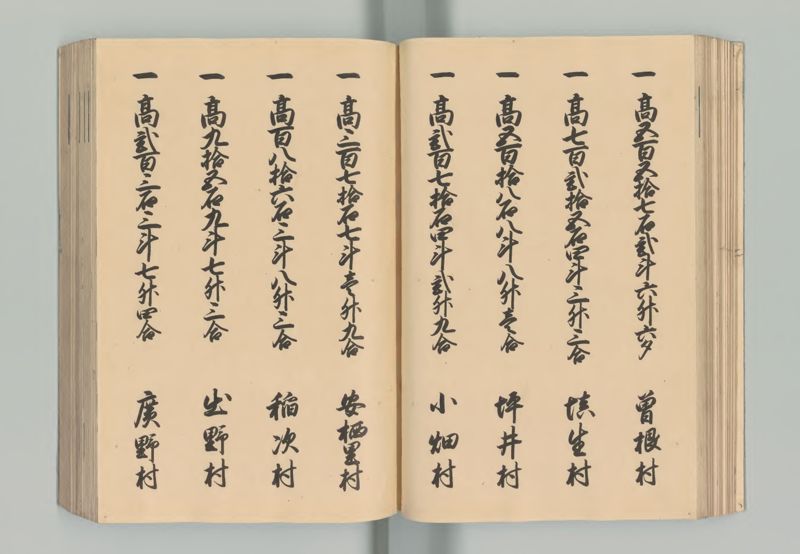 一 高五百五拾七石弐斗六升六夕 曽根村
一 高七百弐拾五石四斗三升三合 埴生村
一 高五百拾八石八斗八升壱合 坪井村
一 高弐百七拾石四斗弐升九合 小畑村
一 高三百七拾石七斗壱升九合 安栖里村
一 高百八拾六石三斗八升三合 稲次村
一 高九拾五石九斗七升三合 出野村
一 高弐百三石三斗七升四合 廣野村